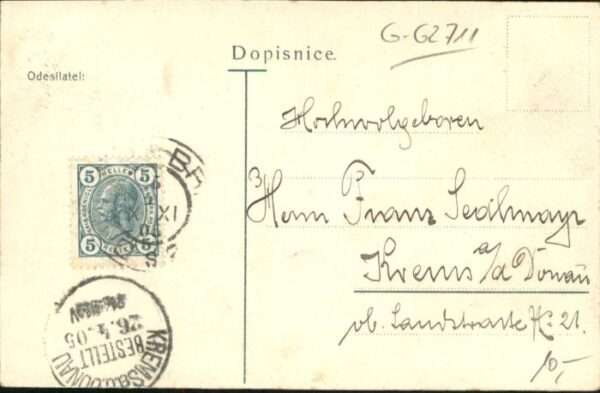 G-G2711
Dopisnice.
Odesílatel:
Hochwolgeboren
Herrn Franz Sedlmayr
Krems a/d Donau
ob. Landstrasse No. 21.
10,-
5 HELLER 5
5 HELLER 5
BR
XI
KREMS A.D. DONAU
BESTELLT
26.4.05